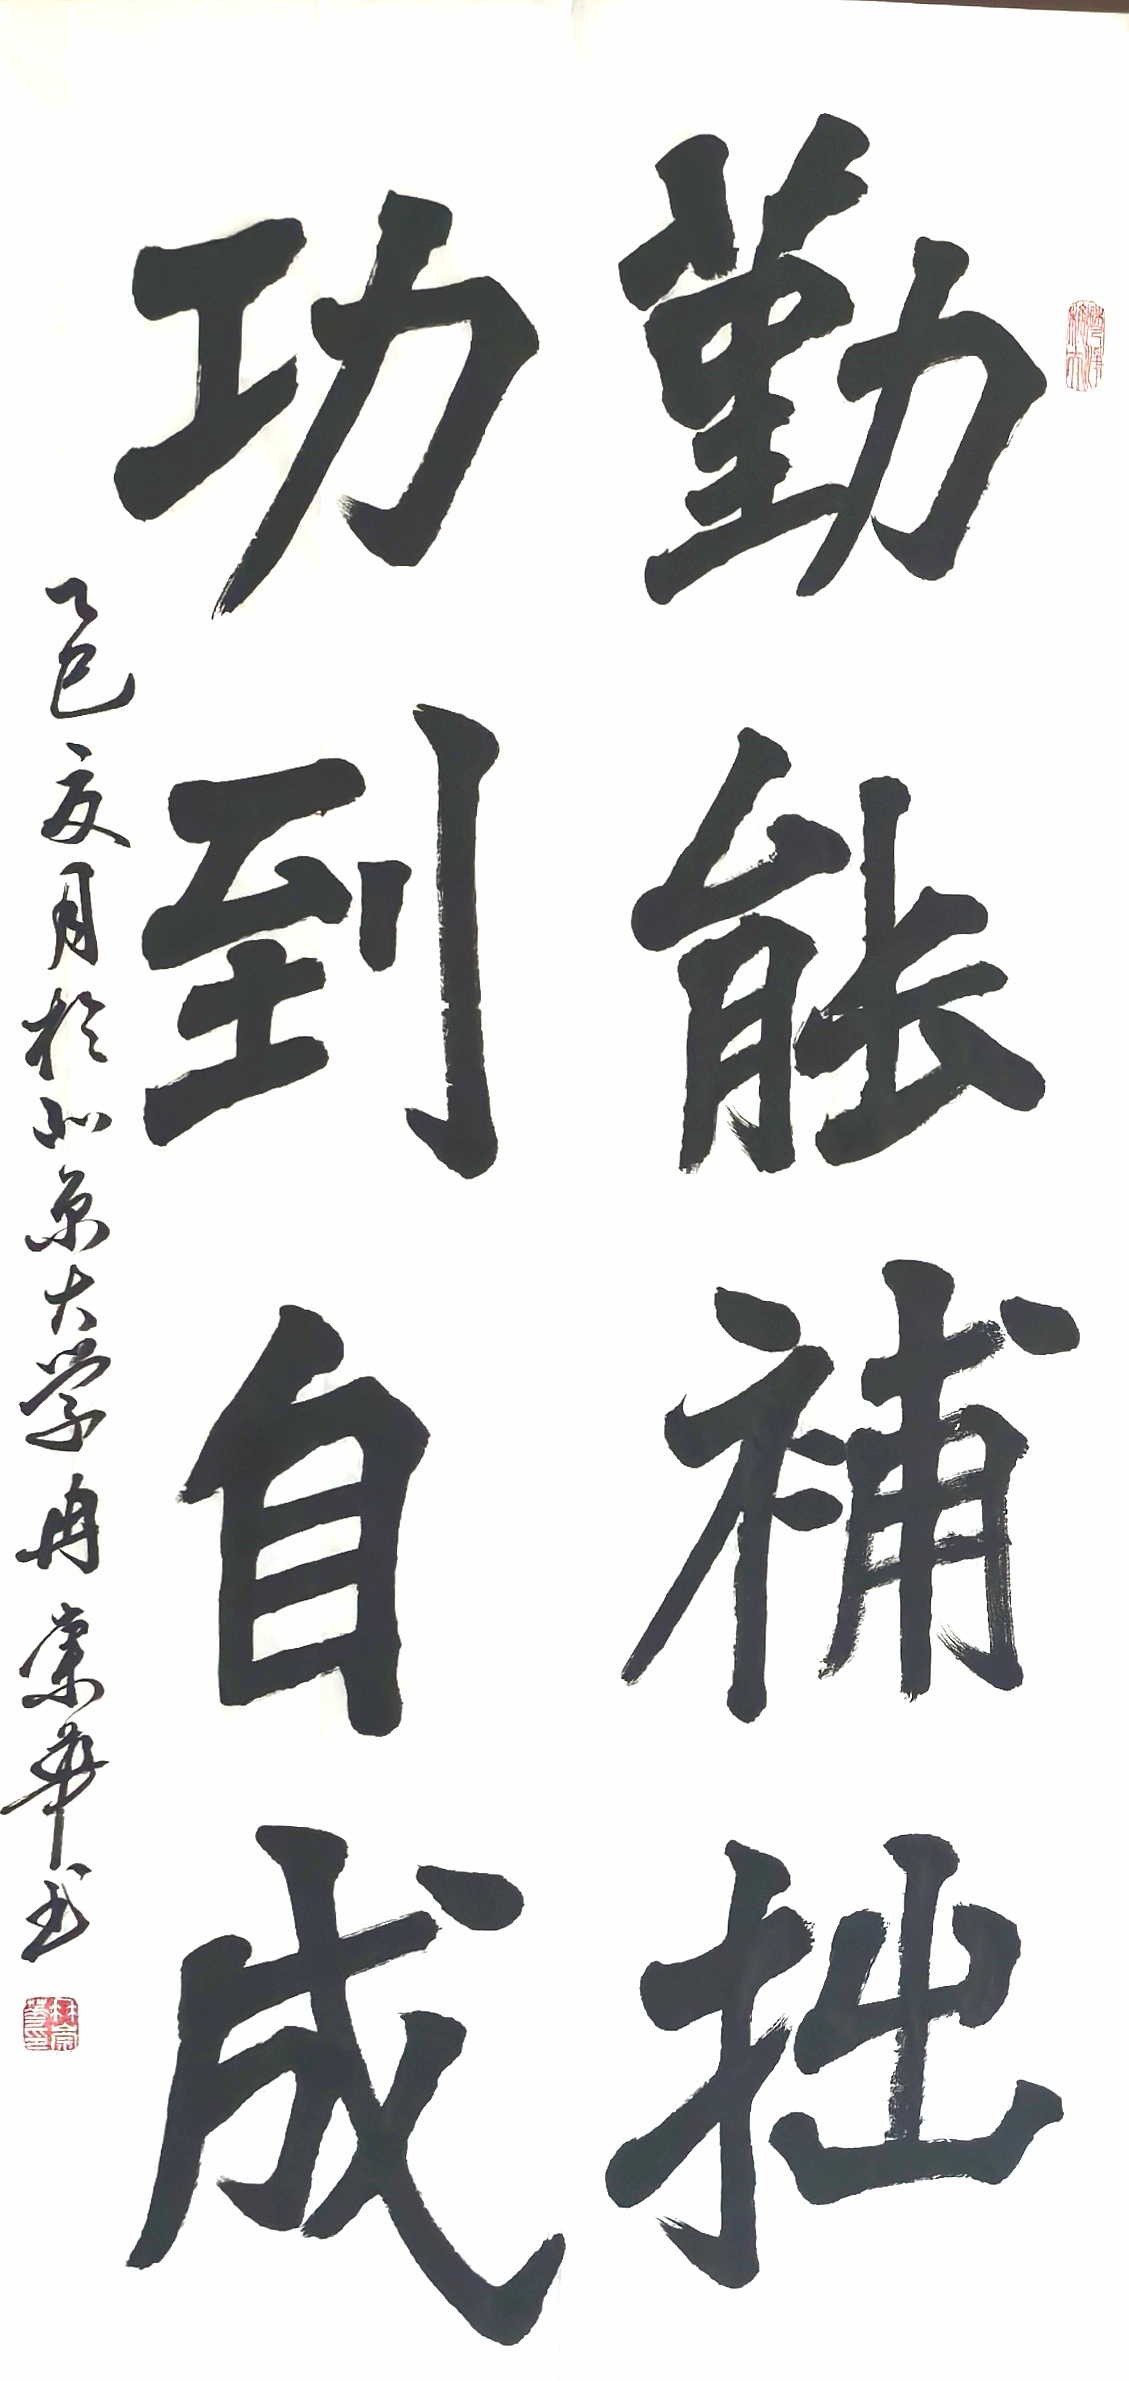 勤能補拙
功到自成
乙巳夏月於北京大学冉華书